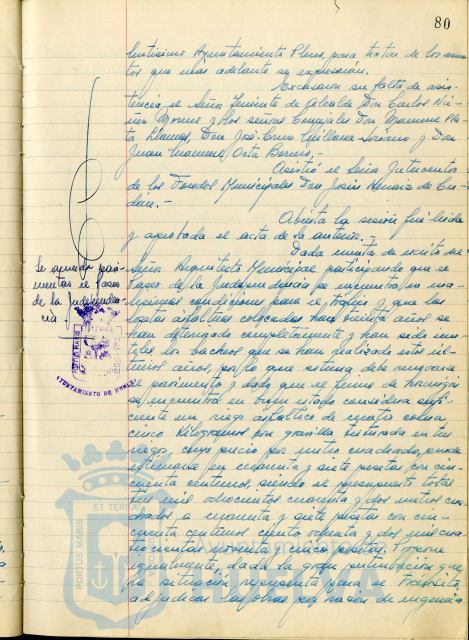 80
lentísimo Ayuntamiento Pleno, para tratar de los asun-
tos que más adelante se expresarán.
Excusaron su falta de asis-
tencia, el Señor Teniente de Alcalde Don Carlos
y los señores Concejales Don Mariano
Llamas, Don José Cruz Orillana Soriano y Don
Juan Manuel Orta
Asistió el Señor Interventor
de los Fondos Municipales Don Jesús Arnaiz de
Abierta la sesión fué leída
y aprobada el acta de la anterior.-
Dada cuenta de escrito del
Señor Arquitecto Municipal participando que el
Paseo de la Independencia se encuentra en ma-
lísimas condiciones para el tráfico y que las
losetas asfálticas colocadas hace treinta años se
han disgregado completamente y han sido inú-
tiles los bacheos que se han realizado estos úl-
timos años, por lo que estima debe renovarse
el pavimento y dado que el firme de hormigón
se encuentra en buen estado considera sufi-
ciente un riego asfáltico de cuatro coma
cinco Kilogramos con gravilla triturada en tres
riegos, cuyo precio por metro cuadrado, puede
estimarse en cuarenta y siete pesetas con cin-
cuenta céntimos, siendo el presupuesto total
tres mil ochocientos cuarenta y dos metros cua-
drados a cuarenta y siete pesetas con cin-
cuenta céntimos ciento ochenta y dos mil cua-
trocientas noventa y cinco pesetas. Propone
igualmente, dada la gran perturbación que
la situación representa para el tránsito,
adjudicar las obras por razón de urgencia
Se aprueba pavi-
mentar el Paseo
de la Independen-
cia
AYUNTAMIENTO DE HUELVA
PORTUS MARIS
ET TERRAE
Ayuntamiento
HUELVA